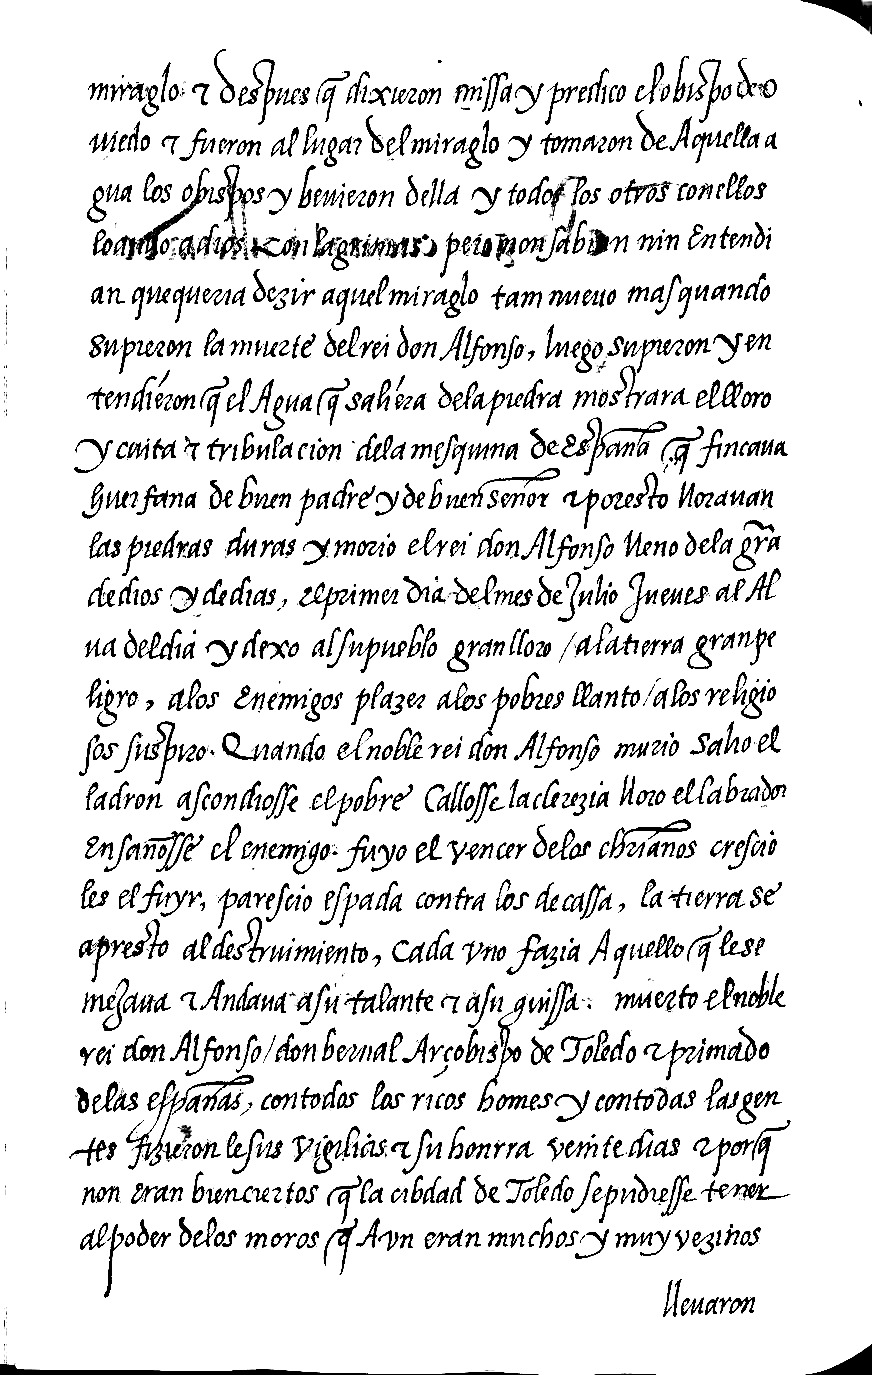 miraglo. τ despues q̃ dixieron missa y predico el obispo de o
uiedo τ fueron al lugar del miraglo y tomaron de Aquella a
gua los obispos y beuieron della y todos los otros con ellos
loando a dios con lagrimas, pero non sabian nin Entendi
an que queria dezir aquel miraglo tam nueuo mas quando
supieron la muerte del rei don Alfonso, luego supieron y en
tendiéron q̃ el Agua q̃ saliéra de la piedra mostrara el lloro
y cuita τ tribulacion de la mesquina de España q̃ fincaua
huerfana de buen padre y de buen señor τ por esto llorauan
las piedras duras y morio el rei don Alfonso lleno de la gr̃a
de dios y de dias, El primer dia del mes de Julio Jueues al Al
ua del dia y dexo al su pueblo gran lloro / a la tierra gran pe
ligro, a los Enemigos plazer a los pobres llanto / a los religio
sos suspiro. Quando el noble rei don Alfonso murio salio el
ladron ascondiosse el pobre Callosse la clerezia lloro el labrador
Ensañosse el enemigo. fuyo el vencer de los chr̃ianos crescio
les el fuyr, parescio espada contra los de cassa, la tierra se
apresto al destruimiento, Cada vno fazia Aquello q̃ le se
mejaua τ Andaua a su talante τ a su guissa. muerto el noble
rei don Alfonso / don bernal Arçobispo de Toledo τ primado
de las españas, con todos los ricos homes y con todas las gen
tes fizieron le sus vigilias τ su honrra veinte dias τ porq̃
non eran bien ciertos q̃ la cibdad de Toledo se pudiesse tener
al poder de los moros q̃ Avn eran muchos y muy vezinos
lleuaron